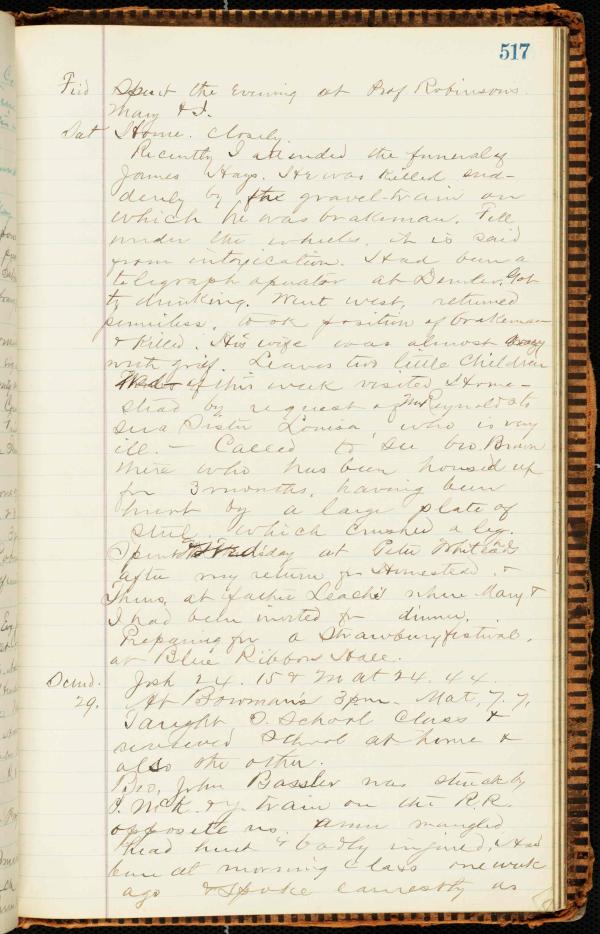 517
Frid Spent the Evening at Prof Robinsons.
Mary & I.
Sat Home. Closely.
Recently I attended the funeral of
James Hays. He was killed sud-
denly by the gravel-train on
which he was brakeman. Fell
under the wheels, it is said
from intoxication. Had been a
telegraph operator at Got
to drinking. Went west, returned
penniless, took position of brakeman
& killed. His wife was almost
with grief. Leaves two little children
of this week visited Home-
stead by request of Mr Reynolds to
see a Sister Louisa, who is very
ill. — Called to see bro. Brown
there who has been housed up
for 3 months, having been
hurt by a large plate of
steel which crushed a leg.
Spent Wedsday at Peter Whiteheads
after my return fr Homestead. &
Thurs. at father Leach's where Mary &
I had been invited for dinner.
Preparing for a Strawbury festival.
at Blue Ribbon Hall.
Josh 24. 15 & M at 24. 44.
29. At Bowman's 3 pm. Mat, 7. 7,
Taught S. School Class &
reviewed School at home &
also the other.
Bro, John Bassler was struck by
P. McK. & Y. train on the R.R.
opposite us. mangled
head hurt & badly injured, Had
been at morning class one week
ago & spoke earnestly as